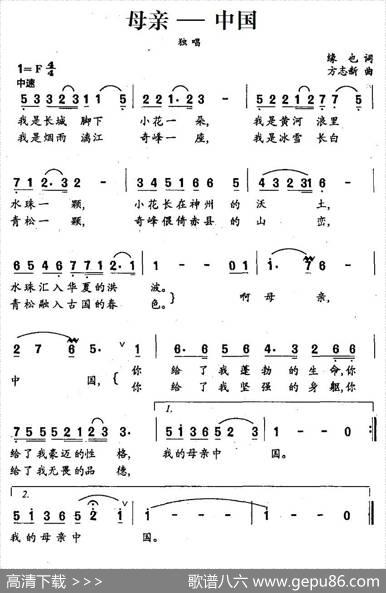 母亲 — 中国
独唱
1=F 4/4
中速
缘也 词
方志新 曲
5 3 3 2 3 1 1 5 | 2 2 1. 2 3 - | 5 2 2 1 7 7 1 2
我是长城 脚下 小花一 朵, 我是黄河 浪里
我是烟雨 漓江 奇峰一 座, 我是冰雪 长白
7 1 2. 3 2 - | 2 1 5 1 6 6 · 5 | 4 3 2 3 1 -
水珠一 颗, 小花长在神州 的 沃 土,
青松一 颗, 奇峰偎倚赤县 的 山 峦,
6 5 4 6 7 7 1 2. 1 | 1 - - 0 1 | i. 7 6 -
水珠汇入华夏的洪 波。 啊 母 亲,
青松融入古国的春 色。
2 7 6 5. 1 | 6. 6 5 6 4. 3 2 6 6
中 国, 你 给了我蓬勃的生命,你
你 给了我坚强的身躯,你
7 5 5 5 5 2 1 2 3 3. | 5 i 3 6 5 5 2 | 1 - - 0 :||
1.
给了我豪迈的性 格, 我的母亲中 国。
给了我无畏的品 德,
2.
5 i 3 6 5 2 i | i - - - | i - - 0 ||
我 的 母 亲 中 国。
高清下载 >>> 歌谱八六 www.gepu86.com